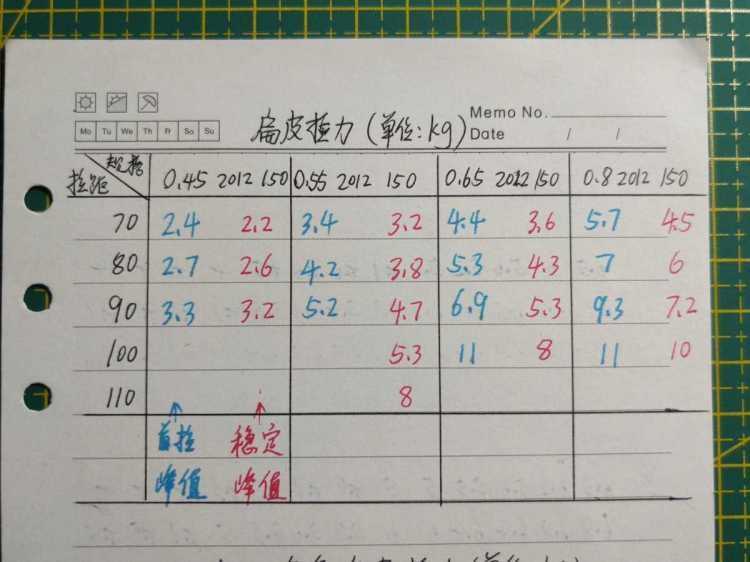 Memo No.
Mo Tu We Th Fr Sa Su
扁皮拉力(单位:kg)
Date / /
规格
拉距
0.45 2012 150 0.55 2012 150 0.65 2012 150 0.8 2012 150
70 2.4 2.2 3.4 3.2 4.4 3.6 5.7 4.5
80 2.7 2.6 4.2 3.8 5.3 4.3 7 6
90 3.3 3.2 5.2 4.7 6.9 5.3 9.3 7.2
100 5.3 11 8 11 10
110 8
首拉 稳定
峰值 峰值